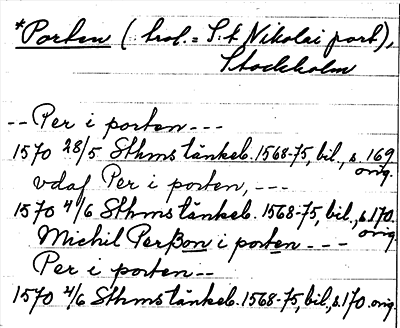 *Porten (trol. = S:t Nikolai port),
Stockholm
-- Per i porten ---
1570 28/5 Sthms tänkeb. 1568-75, bil., s. 169
orig.
vdaf Per i porten, ---
1570 4/6 Sthms tänkeb. 1568-75, bil., s. 170.
orig.
Michil Perßon i porten ---
Per i porten --
1570 4/6 Sthms tänkeb. 1568-75, bil., s. 170. orig.